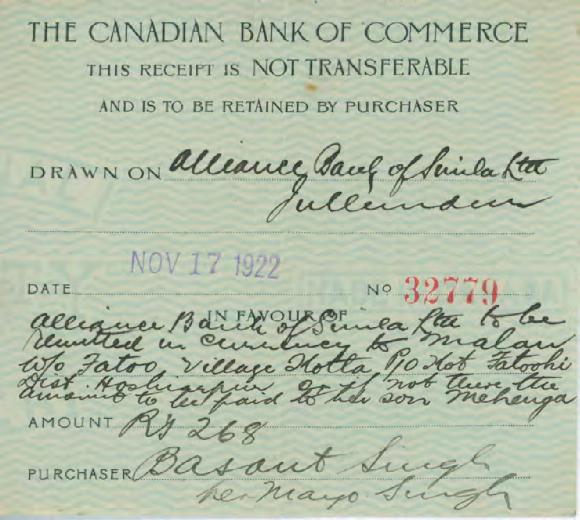 THE CANADIAN BANK OF COMMERCE
THIS RECEIPT IS NOT TRANSFERABLE
AND IS TO BE RETAINED BY PURCHASER
DRAWN ON Alliance Bank of Simla Ltd
Jullunder
NOV 17 1922
DATE No 32779
IN FAVOUR OF
Alliance Bank of Simla Ltd to be
remitted in currency to Malan
w/o Fatoo, Village Kotla, P/O Kot Fatoohi
Dist. Hoshiarpur or if not there the
amount to be paid to her son Mehenga
AMOUNT Rs 268
PURCHASER Basant Singh
per Mayo Singh